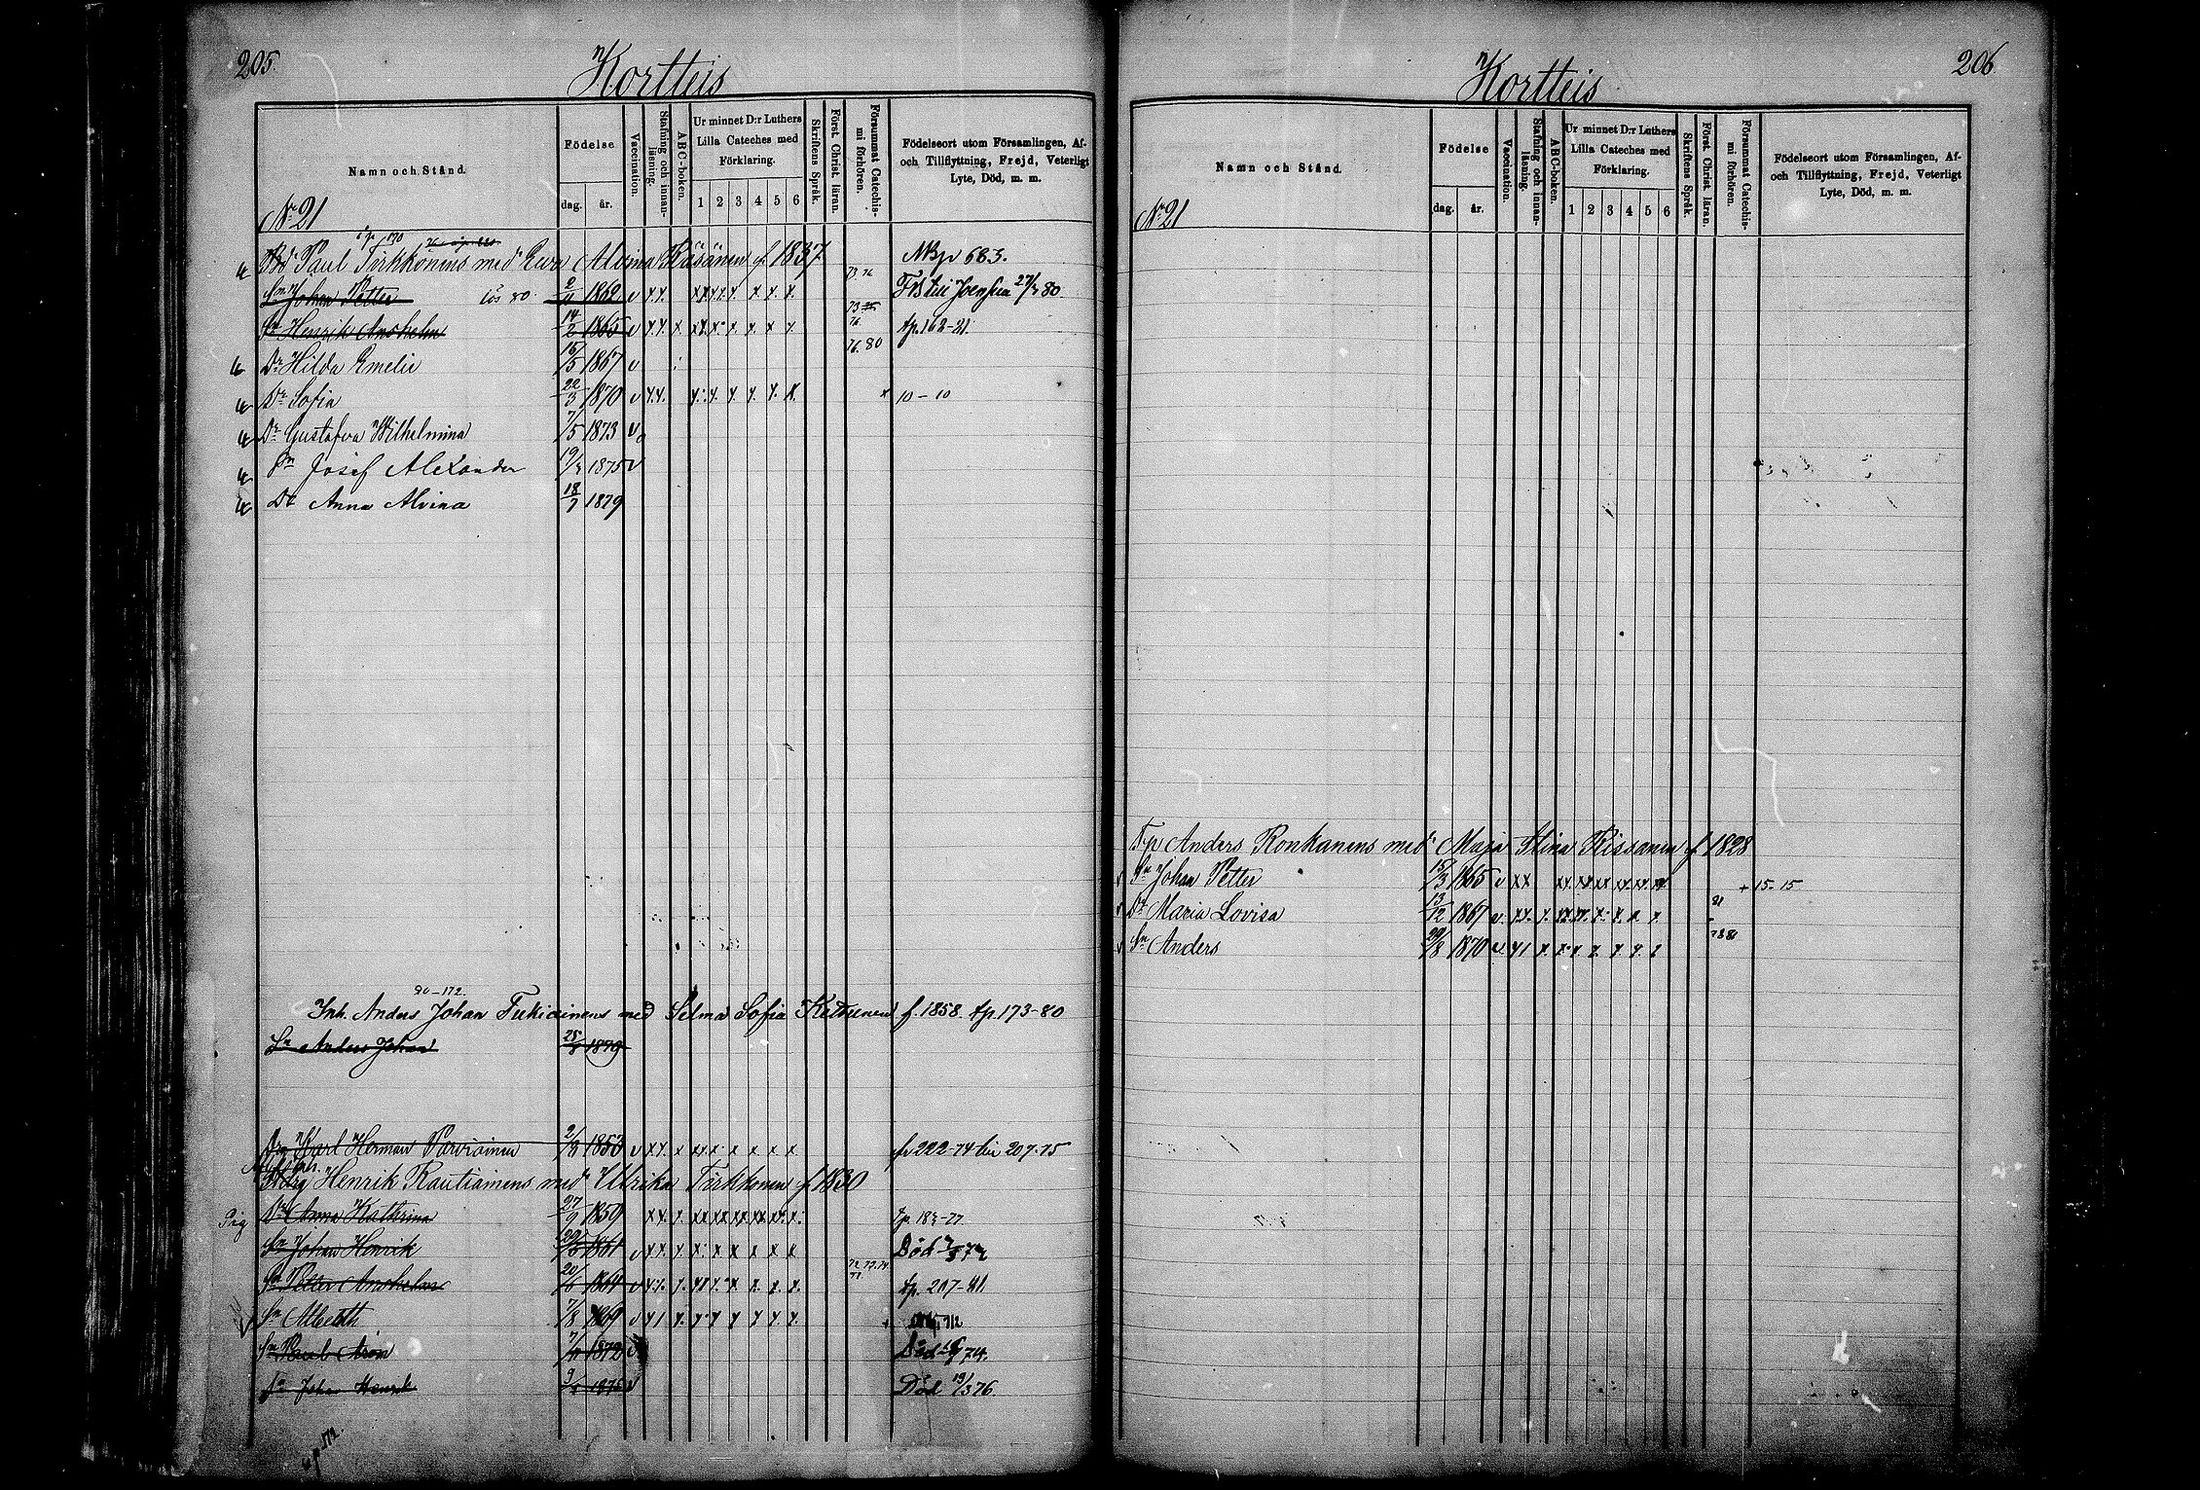 205.
Kortteis
Namn och Stånd.
Födelse
dag. år.
Vaccination.
Stafning och innanläsning.
ABC-boken.
Ur minnet D:r Luthers
Lilla Cateches med
Förklaring.
1 2 3 4 5 6
Skriftens Språk.
Först. Christ. läran.
Försummat Catechismi förhören.
Födelseort utom Församlingen, Af-
och Tillflyttning, Frejd, Veterligt
Lyte, Död, m. m.
N:o 21
Paul Tirkkonens med Eva Alvina Räsänen f. 1837 683.
Sn Johan Petter lös 80. 2/11 1862 v Joensuu 27/ 80.
Sn Henrik Anshelm 14/2 1865 v 162-81.
Dr Hilda Emelie 15/5 1867 v 76. 80
Dr Sofia 22/5 1870 v x 10 - 10
Dr Gustafva Wilhelmina 7/5 1873 v
Sn Josef Alexander 19/ 1875 v
Dr Anna Alvina 18/7 1879
90-172.
Inh. Anders Johan Turkiainens med Selma Sofia f. 1858. tp. 173-80
Sn Anders Johan 1879
Karl Herman Parviainen 2/3 1853 v fr 222-74 till 207-75
Inh.
Henrik Rautiainens med Ulrika Tirkkonen f. 1830
Pig Dr Anna Kathrina 27/9 1859 tp. 183-77
Sn Johan Henrik 1861 v Död
Sn Petter Anshelm 20/ 1864 v tp. 207-81
Sn Alberth 7/8 1869 v
Sn Paul Aron 7/11 1872 v Död 74.
Sn Johan Henrik 1875 v Död 19/3 76.
206
Kortteis
Namn och Stånd.
Födelse
dag. år.
Vaccination.
Stafning och innanläsning.
ABC-boken.
Ur minnet D:r Luthers
Lilla Cateches med
Förklaring.
1 2 3 4 5 6
Skriftens Språk.
Först. Christ. läran.
Försummat Catechismi förhören.
Födelseort utom Församlingen, Af-
och Tillflyttning, Frejd, Veterligt
Lyte, Död, m. m.
N:o 21
Tp Anders Ronkanens med Maja Stina Rissanen f. 1828
Sn Johan Petter 1865 v + 15-15
Dr Maria Lovisa 13/12 1867 v 81
Sn Anders 29/8 1870 v